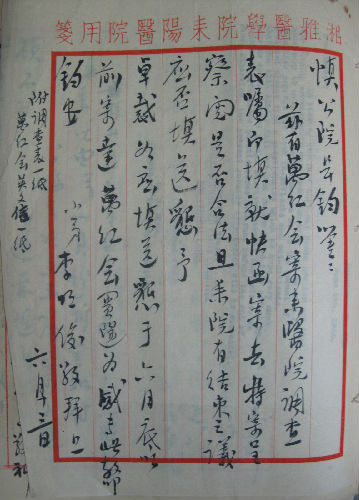 湘雅醫學院耒陽醫院用箋
慎公院長鈞鑒：
茲有萬紅会寄耒醫院調查
表囑即填就快函寄去特寄呈
察閱是否合法且耒院有結束之議
應否填送懇予
卓裁如應填送懇于六月底以
前寄達萬紅会貴陽为感专此敬
鈞安
小弟李明俊敬拜上
六月三日
附調查表一紙
萬紅会英文信一紙